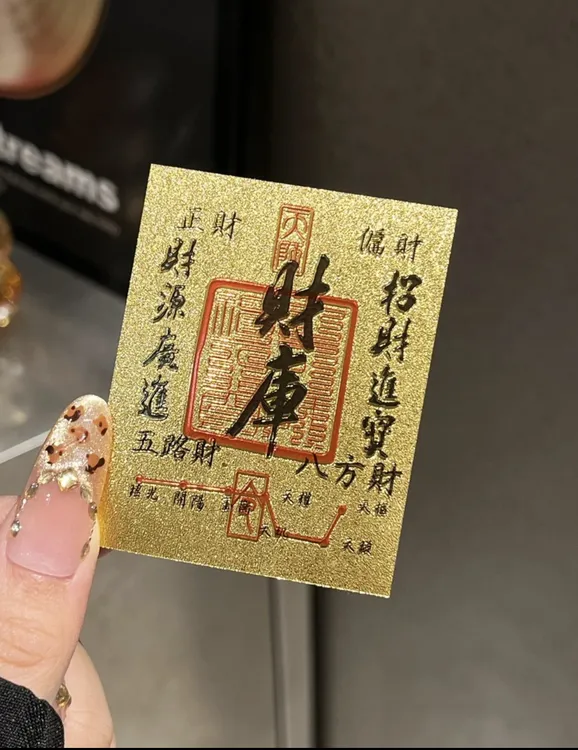 reams
天師
正財
偏財
財庫
招財進寶
財源廣進
五路財
八方財
搖光 開陽 玉衡 天權
天樞
天璣
天璇